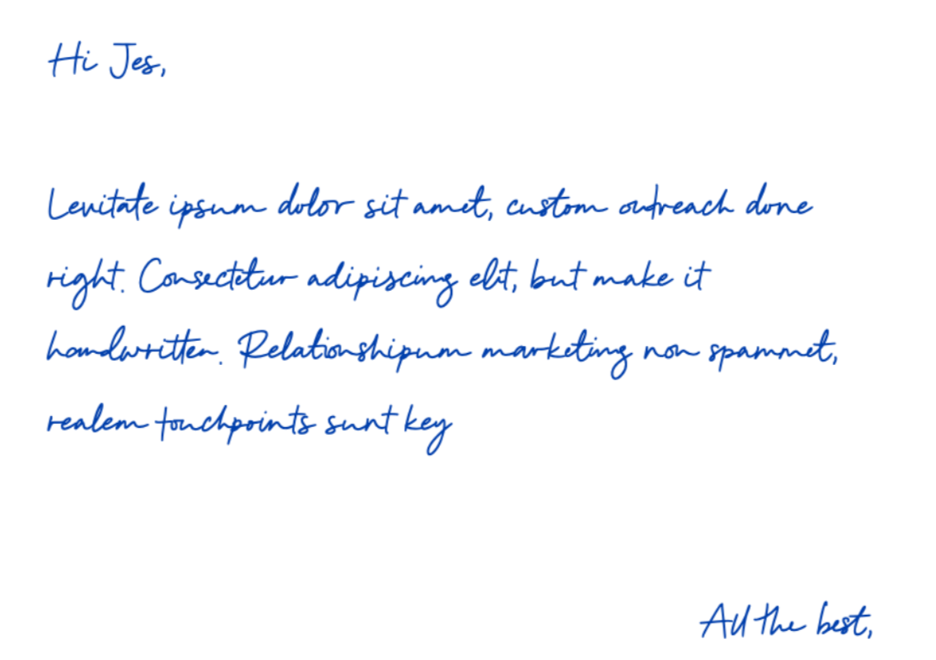 Hi Jes,
Levitate ipsum dolor sit amet, custom outreach done
right. Consectetur adipiscing elit, but make it
handwritten. Relationshipum marketing non spammet,
realem touchpoints sunt key
All the best,